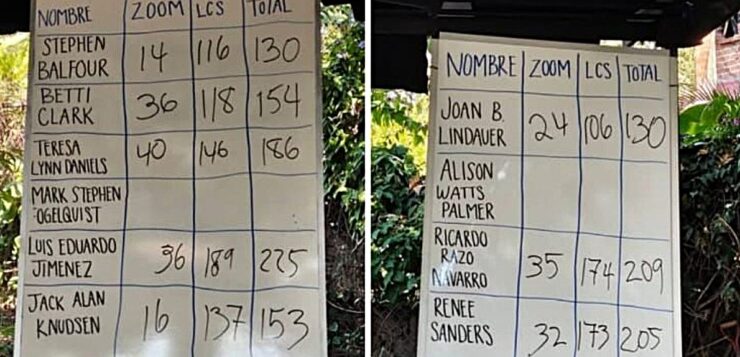 NOMBRE ZOOM LCS TOTAL
STEPHEN
BALFOUR 14 116 130
BETTI
CLARK 36 118 154
TERESA
LYNN DANIELS 40 146 186
MARK STEPHEN
OGELQUIST
LUIS EDUARDO
JIMENEZ 36 189 225
JACK ALAN
KNUDSEN 16 137 153
NOMBRE ZOOM LCS TOTAL
JOAN B.
LINDAUER 24 106 130
ALISON
WATTS
PALMER
RICARDO
RAZO
NAVARRO 35 174 209
RENEE
SANDERS 32 173 205